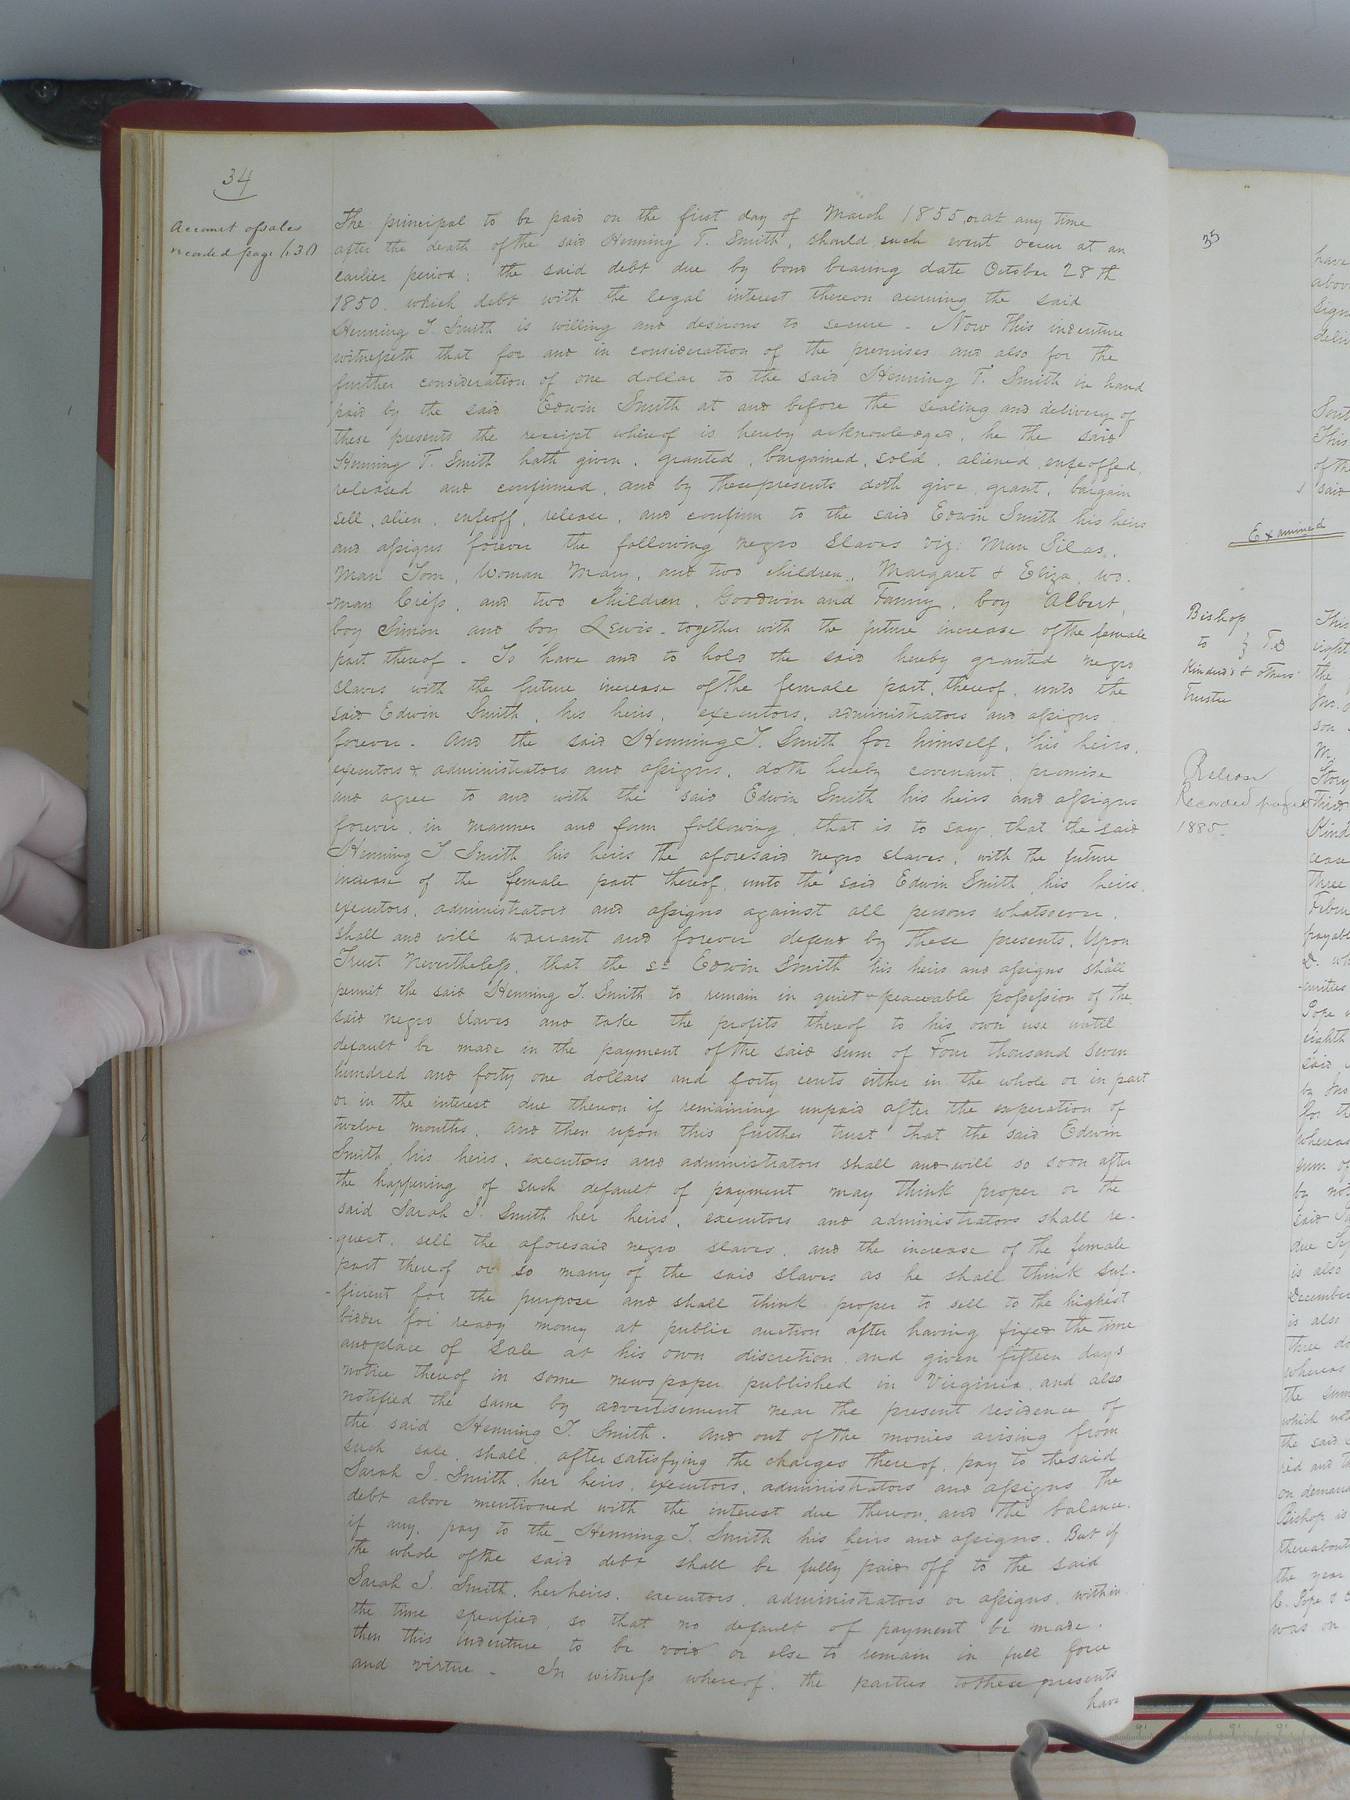 34
Account of sales
recorded page 131
The principal to be paid on the first day of March 1855, or at any time
after the death of the said Henning T. Smith, should such event occur at an
earlier period; the said debt due by bond bearing date October 28th
1850. which debt with the legal interest thereon accruing the said
Henning T. Smith is willing and desirous to secure - Now this indenture
witnesseth that for and in consideration of the premises and also for the
further consideration of one dollar to the said Henning T. Smith in hand
paid by the said Edwin Smith at and before the sealing and delivery of
these presents the receipt whereof is hereby acknowledged, he the said
Henning T. Smith hath given, granted, bargained, sold, aliened, enfeoffed,
released and confirmed, and by these presents doth give, grant, bargain
sell, alien, enfeoff, release, and confirm to the said Edwin Smith his heirs
and assigns forever the following negro slaves viz: Man Silas,
Man Tom, Woman Mary, and two children, Margaret & Eliza, wo-
-man Criss, and two children, Goodwin and Fanny, boy Albert,
boy Simon and boy Lewis - together with the future increase of the female
part thereof - To have and to hold the said hereby granted negro
slaves with the future increase of the female part, thereof, unto the
said Edwin Smith, his heirs, executors, administrators and assigns
forever - And the said Henning T. Smith for himself, his heirs,
executors & administrators and assigns, doth hereby covenant, promise
and agree to and with the said Edwin Smith his heirs and assigns
forever, in manner and form following, that is to say, that the said
Henning T Smith his heirs the aforesaid negro slaves, with the future
increase of the female part thereof, unto the said Edwin Smith, his heirs,
executors, administrators and assigns against all persons whatsoever,
shall and will warrant and forever defend by these presents, Upon
Trust Nevertheless, that the sd Edwin Smith his heirs and assigns shall
permit the said Henning T. Smith to remain in quiet & peaceable possession of the
said negro slaves and take the profits thereof to his own use until
default be made in the payment of the said sum of Four thousand seven
hundred and forty one dollars and forty cents either in the whole or in part
or in the interest due thereon if remaining unpaid after the experation of
twelve months. And then upon this further trust that the said Edwin
Smith, his heirs, executors and administrators shall and will so soon after
the happening of such default of payment may think proper or the
said Sarah J. Smith her heirs, executors and administrators shall re-
-quest, sell the aforesaid negro slaves, and the increase of the female
part thereof or so many of the said slaves as he shall think suf-
-ficient for the purpose and shall think proper to sell to the highest
bidder for ready money at public auction after having fixed the time
and place of Sale at his own discretion and given fifteen days
notice thereof in some newspaper published in Virginia and also
notified the same by advertisement near the present residence of
the said Henning T. Smith. And out of the monies arising from
such sale, shall, after satisfying the charges thereof, pay to the said
Sarah J. Smith, her heirs, executors, administrators and assigns the
debt above mentioned with the interest due thereon, and the balance,
if any, pay to the Henning T. Smith his heirs and assigns. But if
the whole of the said debt shall be fully paid off to the said
Sarah J. Smith, her heirs, executors, administrators or assigns, within
the time specified, so that no default of payment be made.
then this indenture to be void or else to remain in full force
and virtue - In witness whereof, the parties to these presents
have
35
Examined
Bishop
to } TD
Kindred & others
Trustee
Release
Recorded page
1885.
have
above
Sign
deliv
This
of the
said
This
eight
the
son
Story
Third
Kind
three
Febru
payabl
Pope
eighth
said
for th
whereas
sum of
by not
said
is also
December
is also
three
whereas
the sum
which
the said
on demand
Bishop is
thereabout
the year
was on